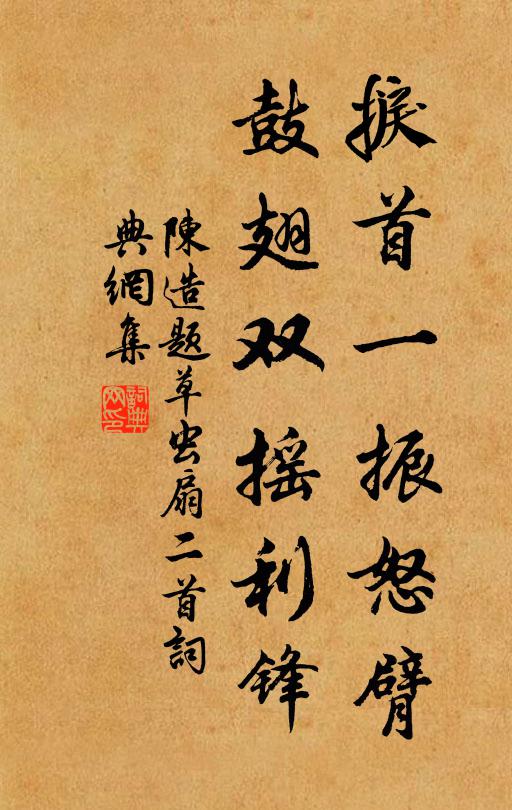 捩首一振怒臂
鼓翅双摇利锋
陳造題草虫扇二首詞
典網集
詞典
网印